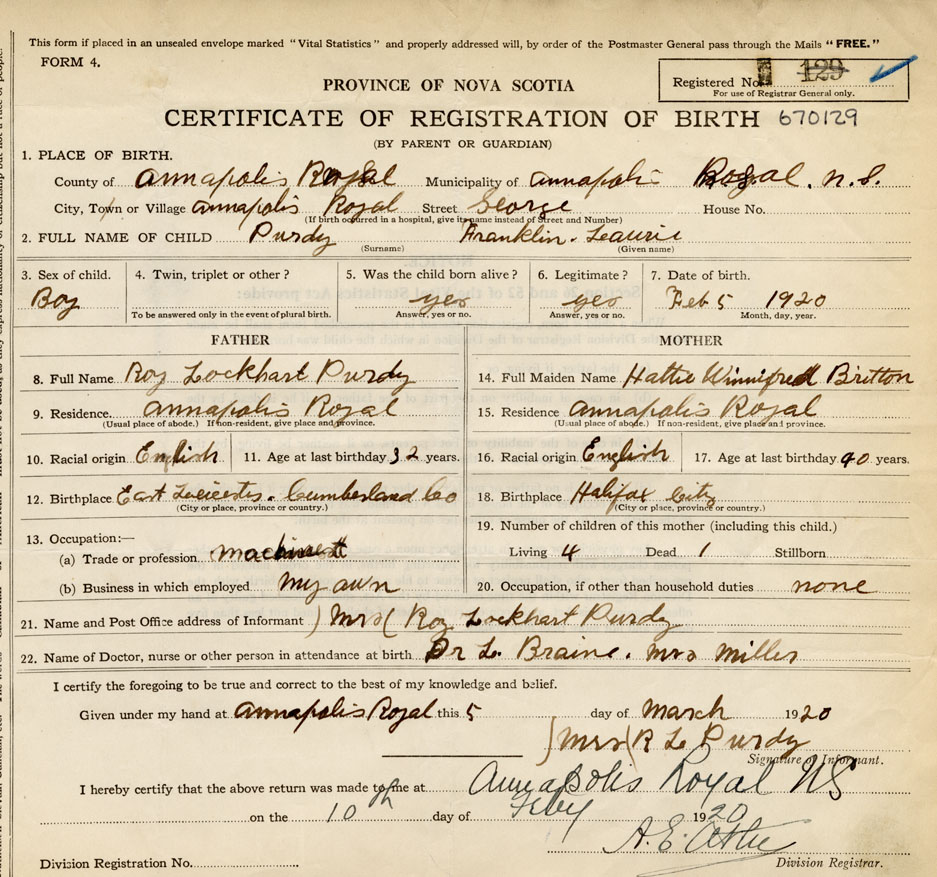 This form if placed in an unsealed envelope marked "Vital Statistics" and properly addressed will, by order of the Postmaster General pass through the Mails "FREE."
FORM 4.
PROVINCE OF NOVA SCOTIA
Registered No. 129
For use of Registrar General only.
CERTIFICATE OF REGISTRATION OF BIRTH 670129
(BY PARENT OR GUARDIAN)
1. PLACE OF BIRTH.
County of Annapolis Royal Municipality of Annapolis Royal, N.S.
City, Town or Village Annapolis Royal Street George House No.
(If birth occurred in a hospital, give its name instead of Street and Number)
2. FULL NAME OF CHILD Purdy Franklin. Laurie
(Surname) (Given name)
3. Sex of child. 4. Twin, triplet or other? 5. Was the child born alive? 6. Legitimate? 7. Date of birth.
Boy yes yes Feb 5 1920
To be answered only in the event of plural birth. Answer, yes or no. Answer, yes or no. Month, day, year.
FATHER MOTHER
8. Full Name Roy Lockhart Purdy 14. Full Maiden Name Hattie Winnifred Britton
9. Residence. Annapolis Royal 15. Residence Annapolis Royal
(Usual place of abode.) If non-resident, give place and province. (Usual place of abode.) If non-resident, give place and province.
10. Racial origin English 11. Age at last birthday 32 years. 16. Racial origin English 17. Age at last birthday 40 years.
12. Birthplace East Leicester. Cumberland Co 18. Birthplace Halifax City
(City or place, province or country.) (City or place, province or country.)
13. Occupation:— 19. Number of children of this mother (including this child.)
(a) Trade or profession machinest Living 4 Dead 1 Stillborn
(b) Business in which employed My own 20. Occupation, if other than household duties none
21. Name and Post Office address of Informant ) Mrs ( Roy Lockhart Purdy
22. Name of Doctor, nurse or other person in attendance at birth Dr L. Braine. Mrs Miller
I certify the foregoing to be true and correct to the best of my knowledge and belief.
Given under my hand at Annapolis Royal this 5 day of March 1920
) Mrs ( R L Purdy
Signature of Informant.
I hereby certify that the above return was made to me at Annapolis Royal NS
on the 10th day of Feby 1920
A. E.
Division Registration No. Division Registrar.